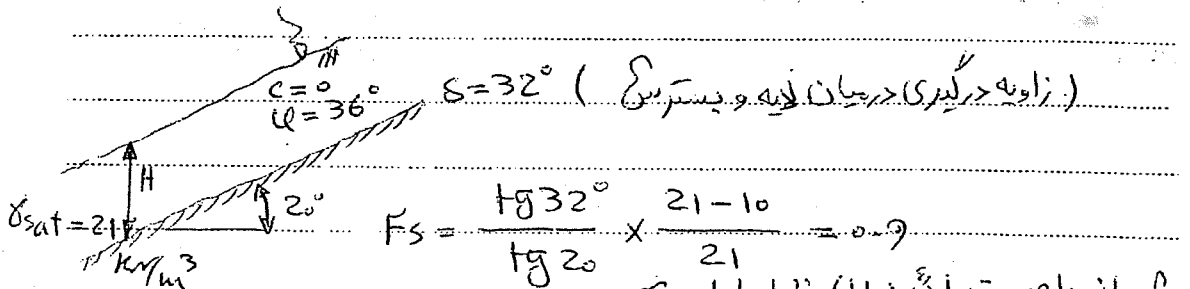 c=0
φ=36°
δ=32° (زاویه درگیری در میان لایه و بستر سنگ)
H
20°
γsat=21 kN/m³
Fs = tg32° / tg20 × 21-10 / 21 = 0.9